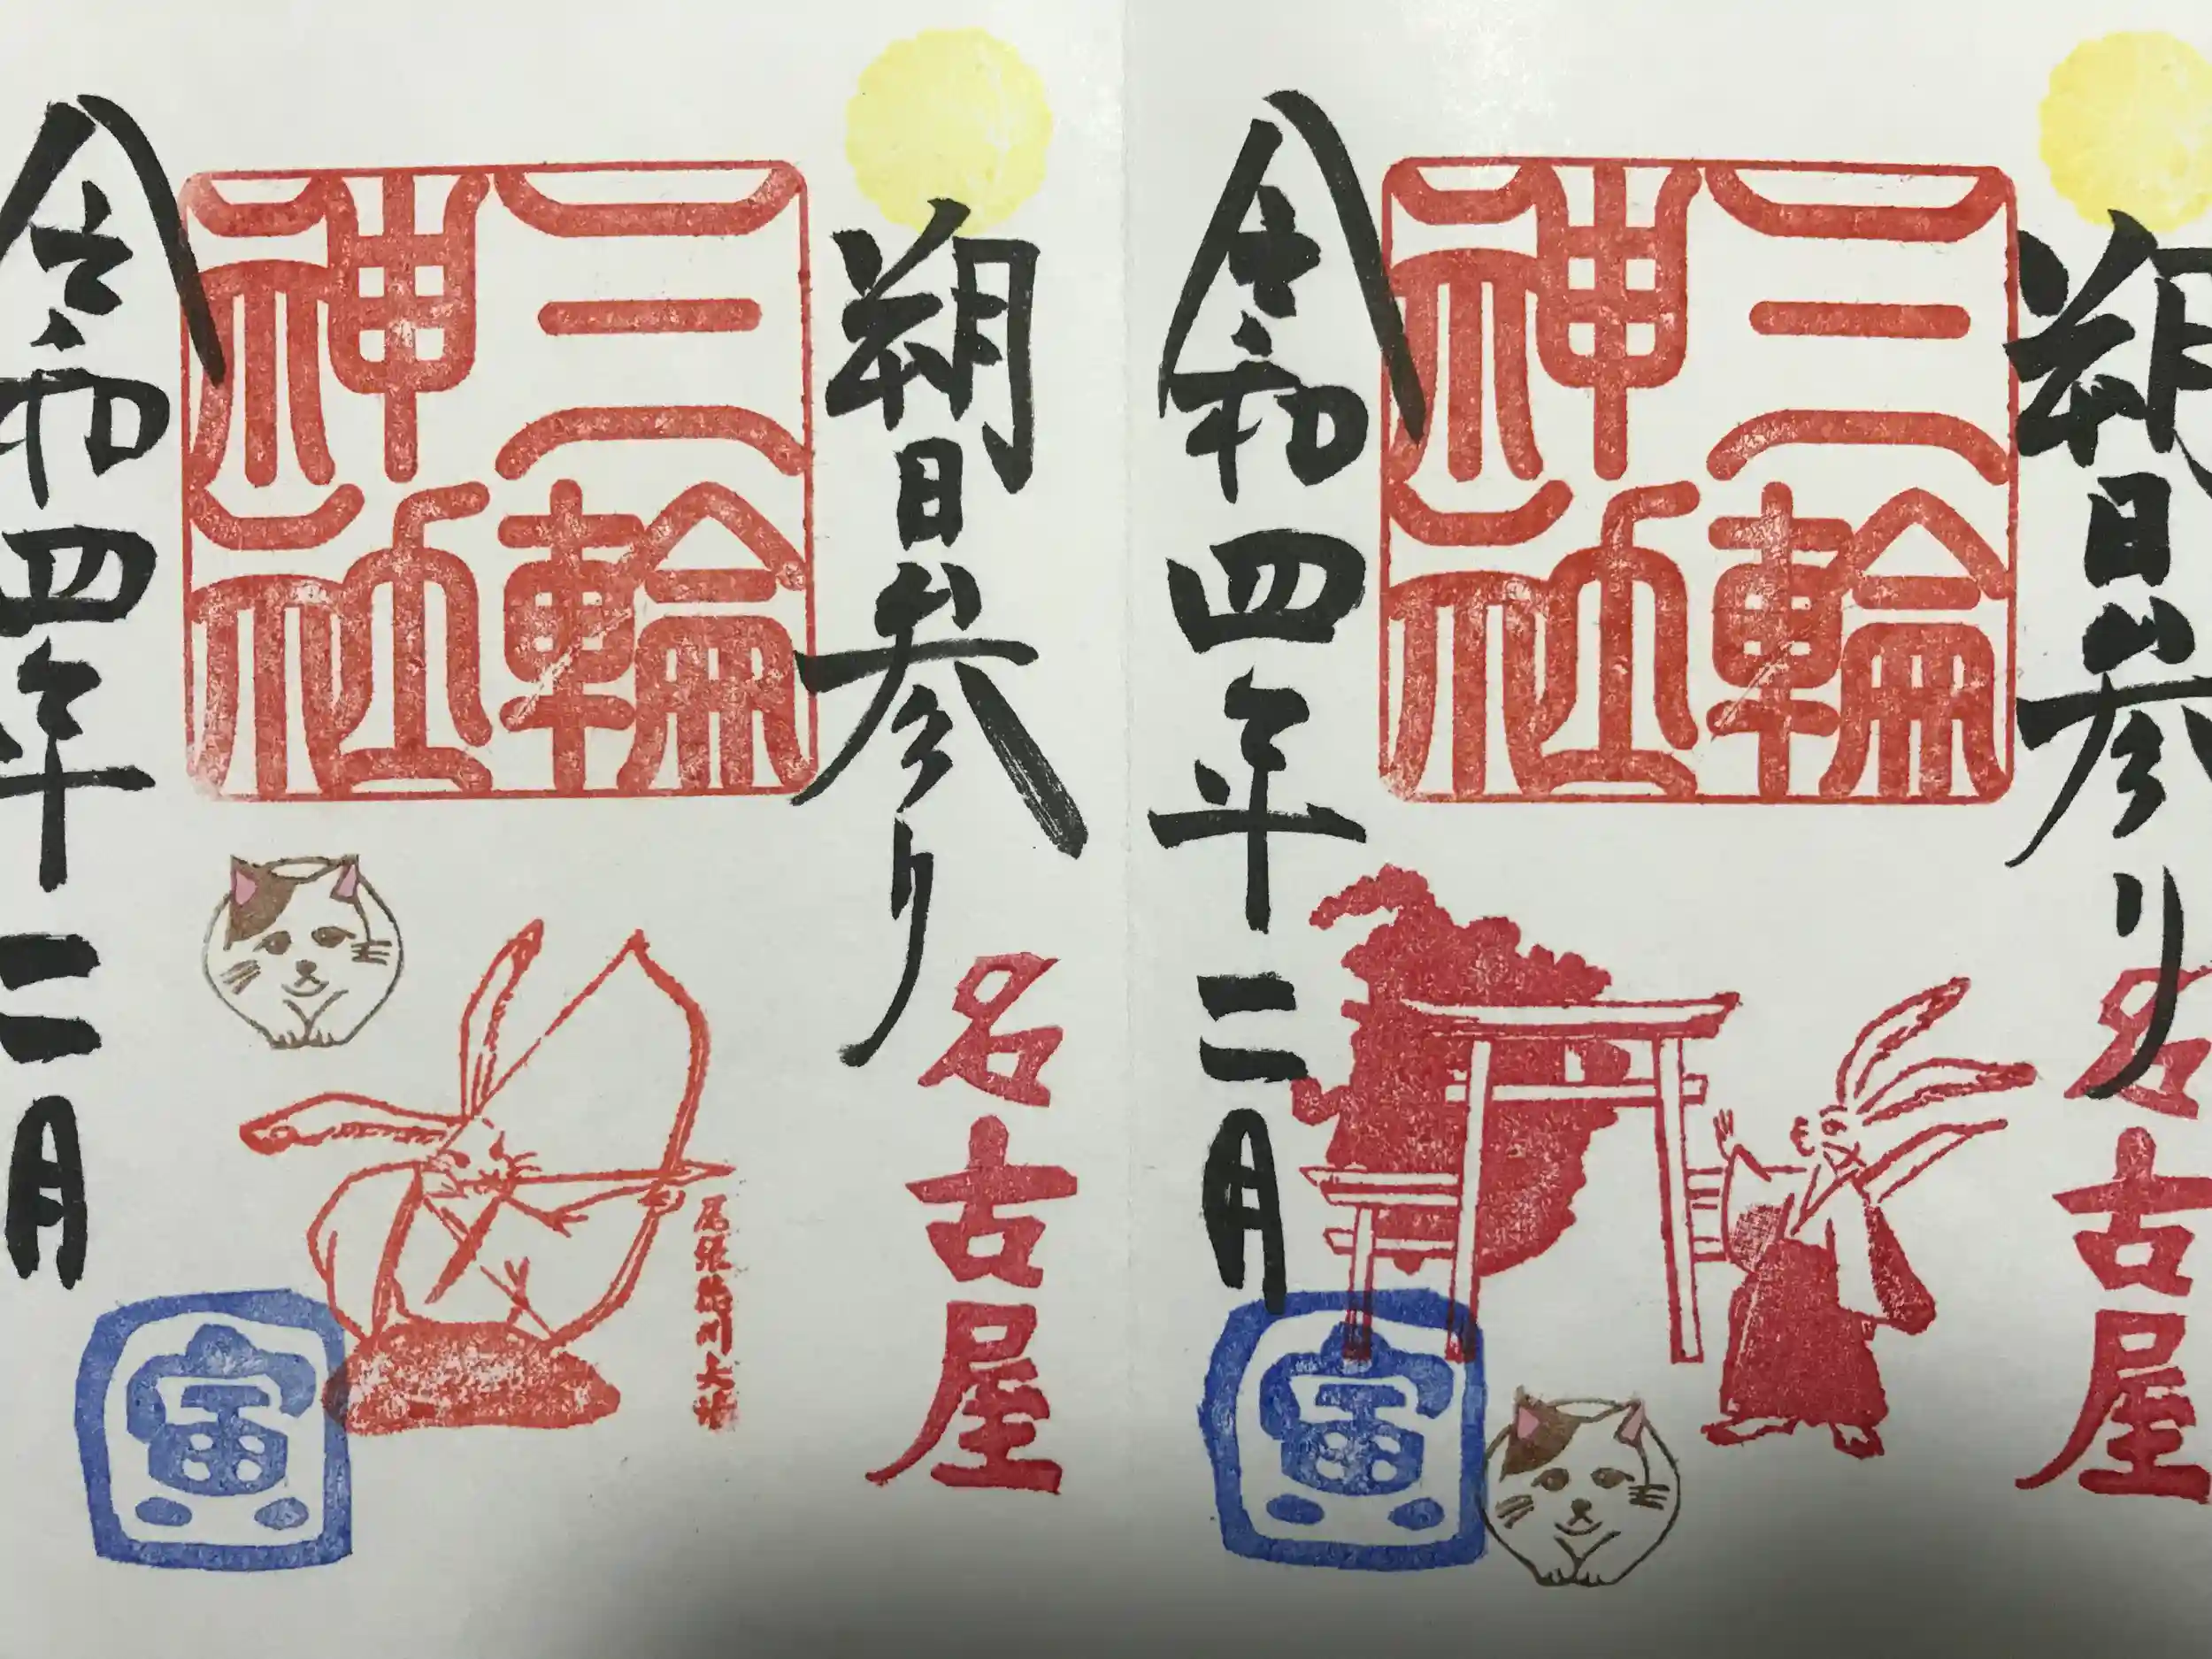 朔日参り
名古屋
三輪
神社
令和四年二月
寅
朔日参り
名古屋
三輪
神社
尾張徳川大矢場
令和四年二月
寅